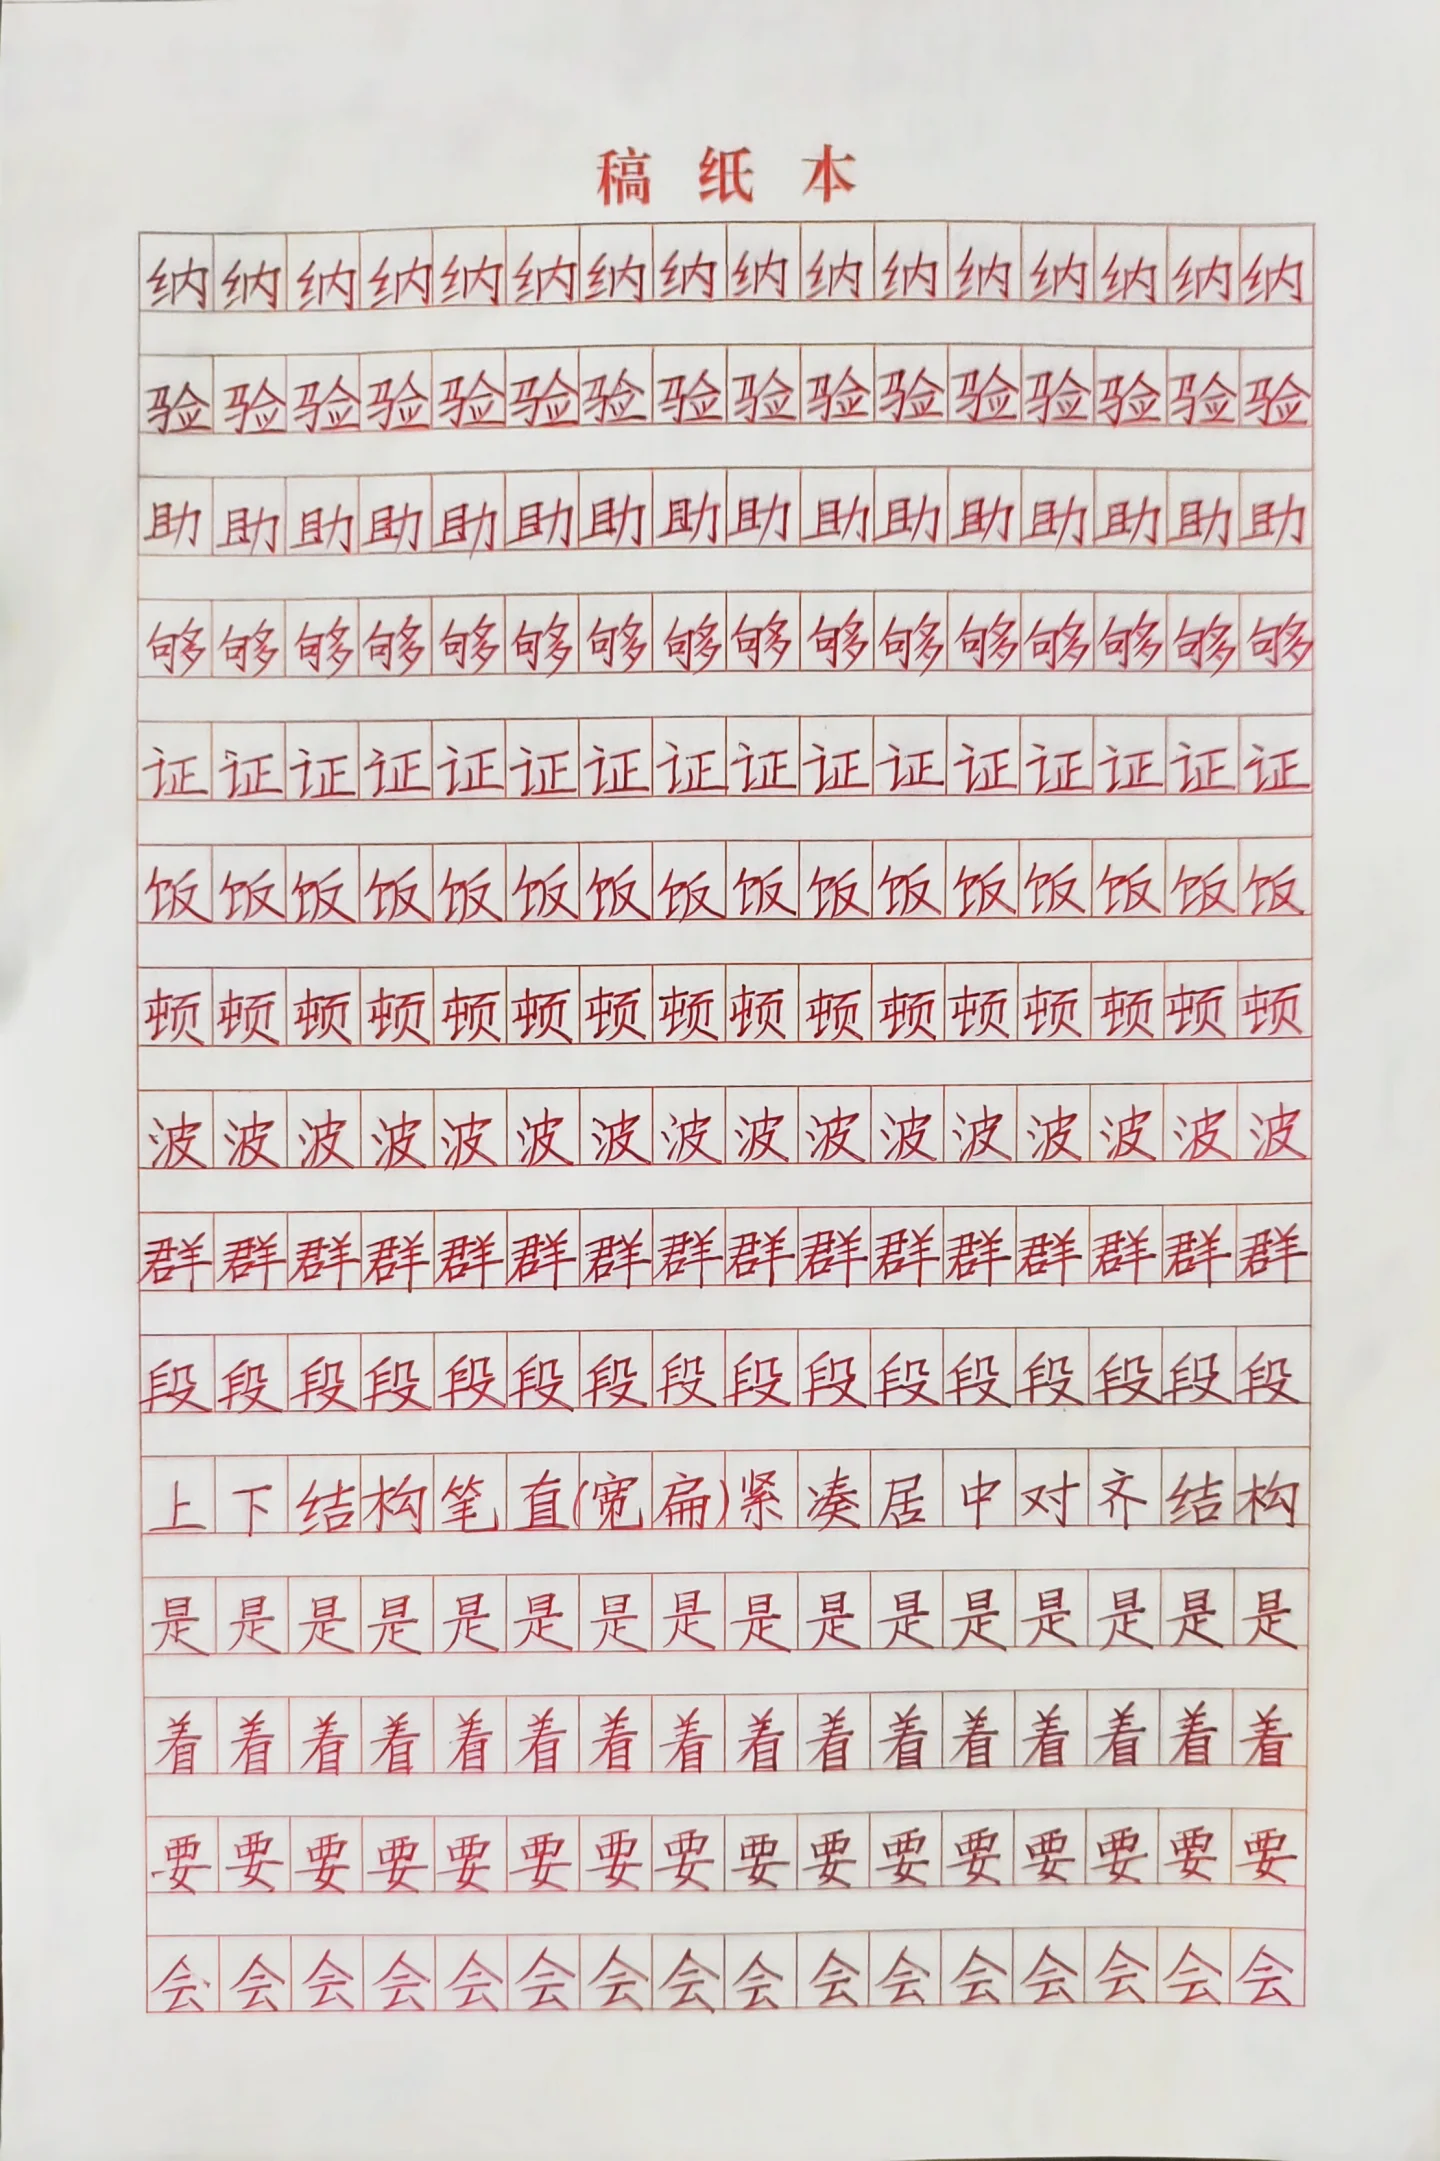 稿纸本
纳纳纳纳纳纳纳纳纳纳纳纳纳纳纳纳
验验验验验验验验验验验验验验验验
助助助助助助助助助助助助助助助助
够够够够够够够够够够够够够够够够
证证证证证证证证证证证证证证证证
饭饭饭饭饭饭饭饭饭饭饭饭饭饭饭饭
顿顿顿顿顿顿顿顿顿顿顿顿顿顿顿顿
波波波波波波波波波波波波波波波波
群群群群群群群群群群群群群群群群
段段段段段段段段段段段段段段段段
上下结构笔直(宽扁)紧凑居中对齐结构
是是是是是是是是是是是是是是是是
着着着着着着着着着着着着着着着着
要要要要要要要要要要要要要要要要
会会会会会会会会会会会会会会会会